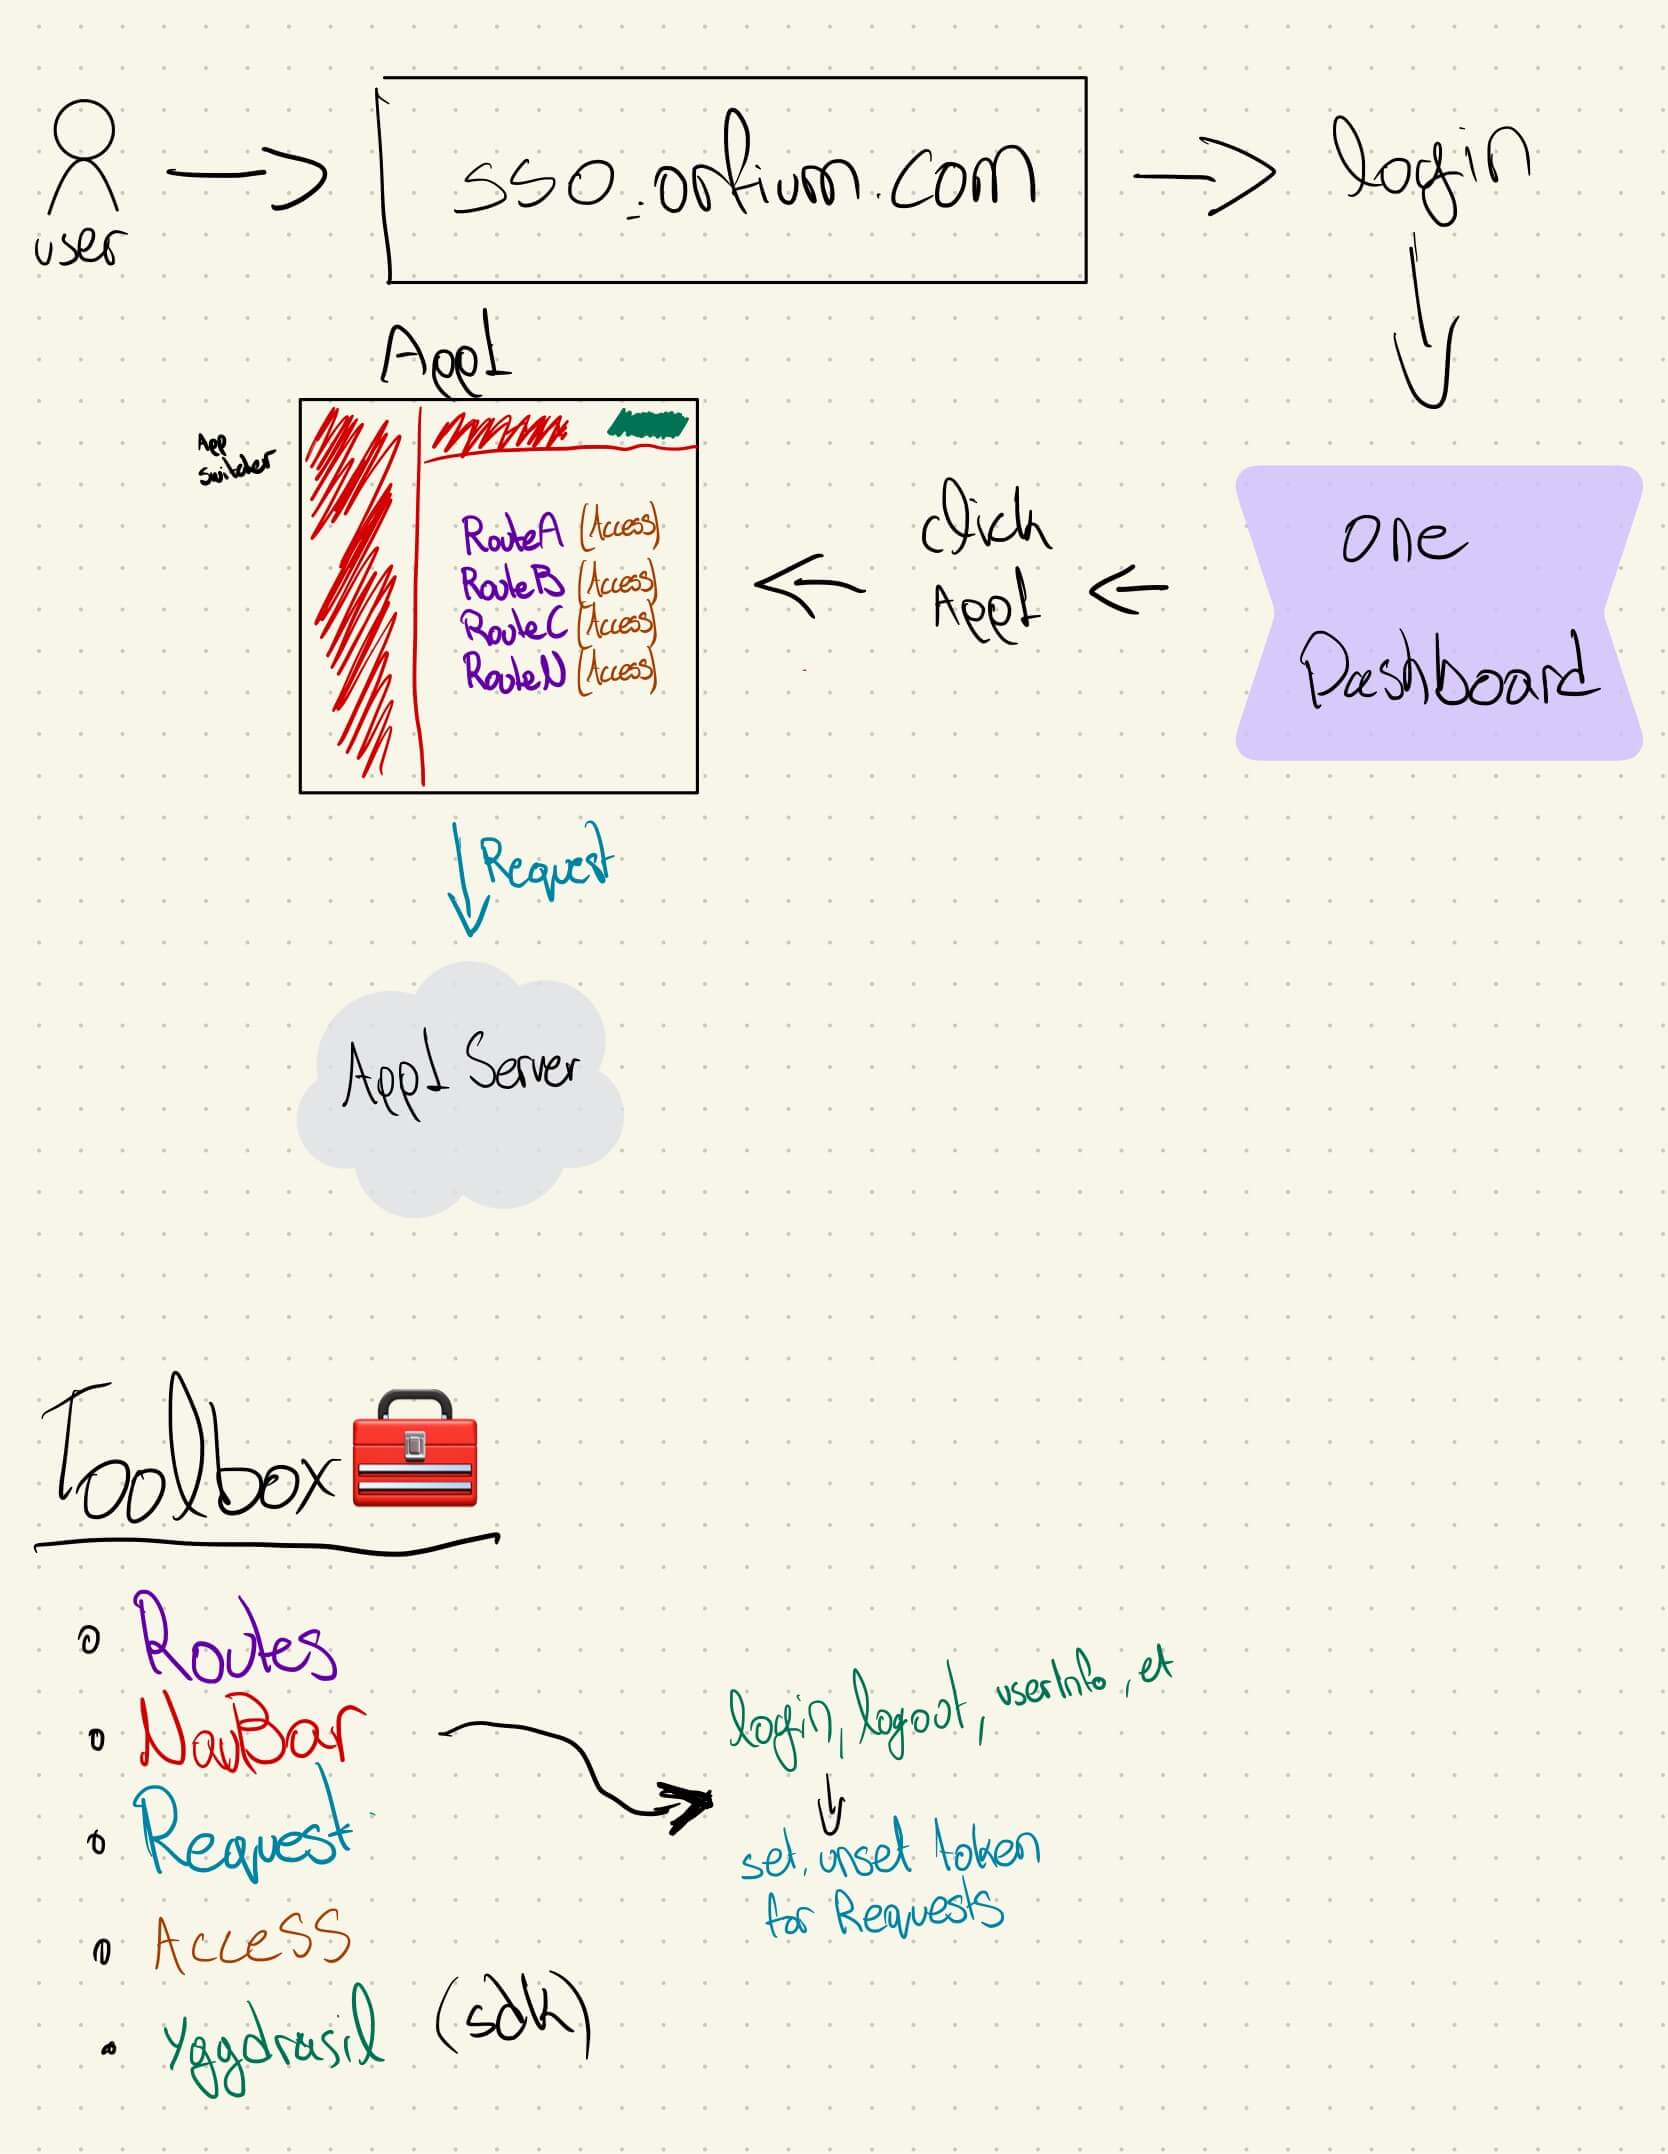 user
sso.orfium.com
login
App1
App
Switcher
RouteA (Access)
RouteB (Access)
RouteC (Access)
RouteN (Access)
click
App1
One
Dashboard
Request
App1 Server
Toolbox
Routes
NavBar
Request
Access
Yggdrasil (sdk)
login, logout, userInfo, et
set, unset token
for Requests